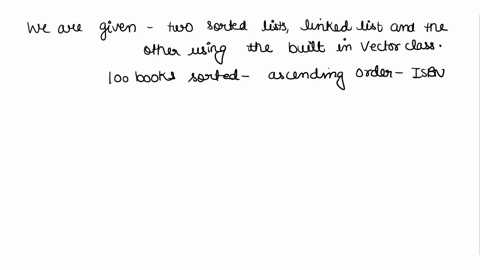 We are given - two sorted lists, linked list and the
other using the built in Vector class.
100 books sorted - ascending order - ISBN